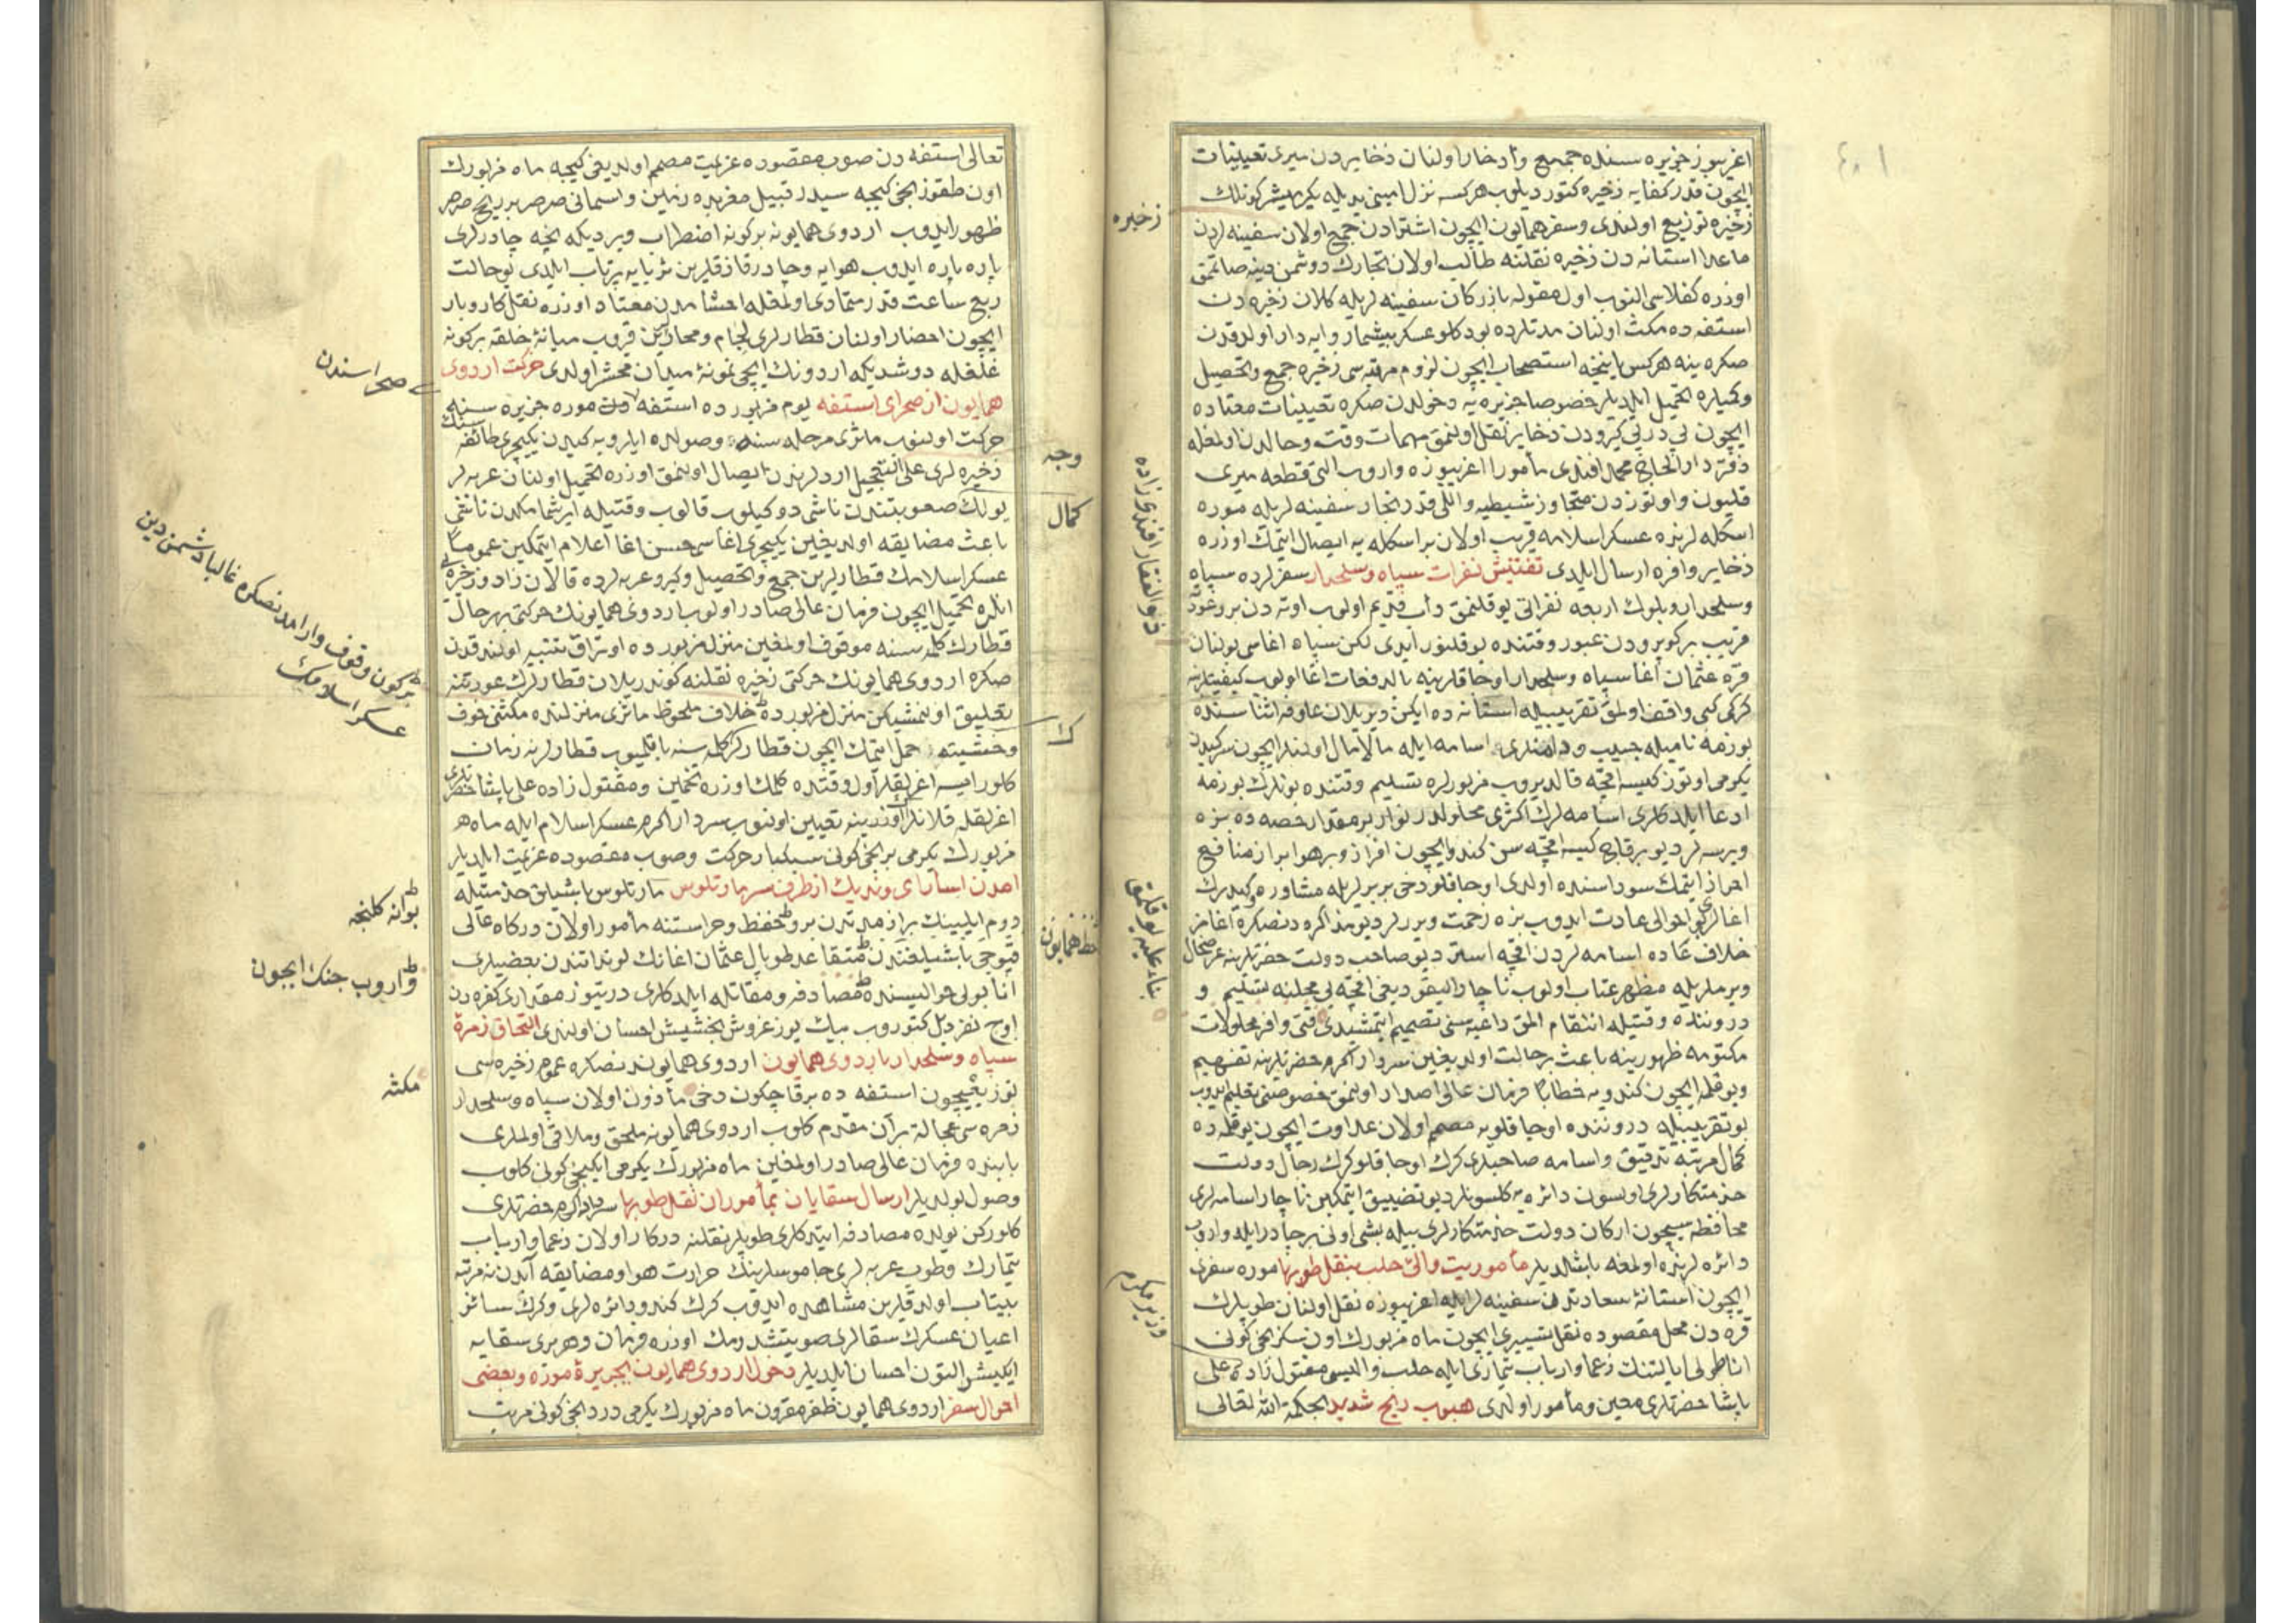 اغریبوز جزیره سنده جمع و ادخار اولنان ذخایردن میری تعیینات
ایچون قدر کفایه ذخیره کتوردیلوب هرکسه نزل امینی یدیله یکرمیشر کونلك
ذخیره توزیع اولندی و سفر همایون ایچون اشترادن جمع اولان سفینه لردن
ماعدا استانه دن ذخیره نقلنه طالب اولان تجارك دوشمن دینه صاتمق
اوزره کفلاسی النوب اول مقوله بازرکان سفینه لریله کلان ذخیره دن
استفه ده مکث اولنان مدتلرده بودکلو عسکر بیشمار وایه دار اولدقدن
صکره ینه هرکس یاننجه استصحاب ایچون لزوم مرتبه سی ذخیره جمع و تحصیل
وکمیلره تحمیل ایلدیلر خصوصا جزیره یه دخولدن صکره تعیینات معتاده
ایچون پی در پی کیرودن ذخایر نقل اولنمق مهمات وقت و حالدن اولمغله
دفتردار الحاج محمد افندی مأمورا اغریبوزه واروب التی قطعه میری
قلیون و اوتوزدن متجاوز شیطیه و اللی قدر تجار سفینه لریله موره
اسکله لرنده عسکر اسلامه قریب اولان بر اسکله یه ایصال ایتمك اوزره
ذخایر وافره ارسال ایلدی تفتیش نفرات سپاه و سلحدار سفرلرده سپاه
و سلحدار و بلوك اربعه نفراتی یوقلنمق دأب قدیم اولوب اوته دن برو
قریب بر کوپریدن عبور وقتنده یوقلنور ایدی لکن سپاه اغاسی بولنان
قره عثمان اغا سپاه و سلحدار اوجاقلرینه بالدفعات اغا اولوب کیفیتلرینه
کرکی کبی واقف اولمق تقریبیله استانه ده ایکن دیریلان علوفه اثناسنده
بوزمه نامیله جیب و دامنلری اسامه ایله مالامال اولنلر ایچون سرکیدن
یکرمی اوتوز کیسه اقچه قالدیروب مزبورلره تسلیم وقتنده بونلرك بوزمه
ادعا ایلدکلری اسامه لرك اکثری محلولدر بونلر بر مقدار حصه ده بزه
ویرسه لر دیو برقاج کیسه اقچه سن کندو ایچون افراز و بر هوا براز منافع
احراز ایتمك سوداسنده اولدی اوجاقلو دخی بربرلریله مشاوره و کیدرك
اغالری بو احوالی عادت ایدوب بزه زحمت ویررلر دیو مذاکره دنصکره اغامز
خلاف عاده اسامه لردن اقچه استر دیو صاحب دولت حضرتلرینه عرضحال
ویرملریله مظهر عتاب اولوب ناچار الیقودیغی اقچه یی محلنه تسلیم و
دروننده وقتیله انتقام المق داعیه سنی تصمیم ایتمشیدی قتی وافر محلولات
مکتومه ظهورینه باعث بر حالت اولدیغین سردار اکرم حضرتلرینه تفهیم
و یوقلمه ایچون کندویه خطابا فرمان عالی اصدار اولنمق خصوصنی تعلیم ایدوب
بو تقریبیله دروننده اوجاقلویه مصمم اولان عداوت ایچون یوقلمه ده
کمال مرتبه تدقیق و اسامه صاحبلری کرك اوجاقلو کرك رجال دولت
خدمتکارلری اولسون دائره یه کلسونلر دیو تضییق ایتمکین ناچار اسامه لری
محافظه سیچون ارکان دولت خدمتکارلری بیله بشی اونی بر چادر ایله واروب
دائره لرنده اولمغه باشلدیلر مأموریت والئ حلب بنقل طوبها موره سفری
ایچون استانۀ سعادتدن سفینه لر ایله اغریبوزه نقل اولنان طوپلرك
قره دن محل مقصوده نقل و تسییری ایچون ماه مزبورك اون سکزنجی کونی
اناطولی ایالتنك زعما و ارباب تیماری ایله حلب والیسی مقتول زاده علی
پاشا حضرتلری معین و مأمور اولدی هبوب ریح شدید بحکمة الله تعالی
ذخیره
ذو الفقار افندی زاده
بناء علیه یوقلمق
وزیر مکرم
تعالی استفه دن صوب مقصوده عزیمت مصمم اولدیغی کیجه ماه مزبورك
اون طقوزنجی کیجه سیدر قبیل مغربده زمین و اسمانی صرصر بر ریح صرصر
ظهور ایدوب اردوی همایونه برکونه اضطراب ویردیکه نیجه چادرلری
پاره پاره ایدوب هوایه و چادر قازقلرین ثریایه پرتاب ایلدی بو حالت
ربع ساعت قدر متمادی اولمغله اخشامدن معتاد اوزره نقل کاروبار
ایچون احضار اولنان قطارلری لجام و مهارلرین قروب میانۀ خلقه برکونه
غلغله دوشدیکه اردونك ایچی نمونۀ میدان محشر اولدی حرکت اردوی
همایون از صحرای استفه یوم مزبورده استفه دن موره جزیره سنه
حرکت اولنوب ماثری مرحله سنه وصولده ایلرویه کیدن یکیچری طائفه سنك
ذخیره لری علی التعجیل اردلرندن ایصال اولنمق اوزره تحمیل اولنان عربه لر
یولك صعوبتندن ناشی دوکیلوب قالوب وقتیله ایرشمامکدن ناشی
باعث مضایقه اولدیغین یکیچری اغاسی حسن اغا اعلام ایتمکین عموما
عسکر اسلامك قطارلرین جمع و تحصیل و کیرو عربه لرده قالان زاد و ذخیره یی
انلره تحمیل ایچون فرمان عالی صادر اولوب اردوی همایونك حرکتی بهرحال
قطارك کلمه سنه موقوف اولمغین منزل مزبورده اوتراق تنبیه اولندقدن
صکره اردوی همایونك حرکتی ذخیره نقلنه کوندریلان قطارلرك عودتنه
تعلیق اولنمشیکن منزل مزبورده خلاف ملحوظ ماثری منزلنده مکثنی خوف
و خشیته حمل ایتمك ایچون قطارلرك کلمه سنه باقلمیوب قطارلر نه زمان
کلور ایسه اغرلقلر اول وقتنده کلمك اوزره تخمین و مقتول زاده علی پاشا حضرتلری
اغرلقله قلانلر اوزرینه تعیین اولنوب سردار اکرم عسکر اسلام ایله ماه
مزبورك یکرمی برنجی کونی سبکبار حرکت و صوب مقصوده عزیمت ایلدیلر
امدن اسارای وندیك از طرف سرمارتلوس مارتلوس باشیلق خدمتیله
روم ایلینك براز مدتدن برو حفظ و حراستنه مأمور اولان درکاه عالی
قپوجی باشیلغندن متقاعد طوپال عثمان اغانك لونداتندن بعضیلری
انابولی حوالیسنده مصادف و مقاتله ایلدکلری درتیوز مقداری کفره دن
اوچ نفر دیل کتوروب بیك یوز غروش بخشیش احسان اولندی التحاق زمرۀ
سپاه و سلحدار باردوی همایون اردوی همایوندنصکره عموم ذخیره سی
توزیعیچون استفه ده برقاچ کون دخی مأذون اولان سپاه و سلحدار
زمره سی عجالة بر آن مقدم کلوب اردوی همایونه ملحق و ملاقی اولملری
بابنده فرمان عالی صادر اولمغین ماه مزبورك یکرمی ایکنجی کونی کلوب
وصول بولدیلر ارسال سقایان بمأموران نقل طوبها سردار اکرم حضرتلری
کلورکن یولده مصادفه ایتدکلری طوپلر نقلنه درکار اولان زعما و ارباب
تیمارك و طوپ عربه لری جاموسلرینك حرارت هوا و مضایقه آبدن نه مرتبه
بیتاب اولدقلرین مشاهده ایدوب کرك کندو دائره لری و کرك سائر
اعیان عسکرك سقالری صو یتشدرمك اوزره فرمان و هر بری سقایه
ایکیشر التون احسان ایلدیلر دخول اردوی همایون بجزیرۀ موره و بعضی
احوال سفر اردوی همایون ظفرمقرون ماه مزبورك یکرمی دردنجی کونی مرتب
وجه
کمال
خط همایون
صحراسندن
برکون وقوف و ارامدنصکره غالبا دشمن دین
عسکر اسلامك
بوانه کلنجه
واروب جنك ایچون
مکثه